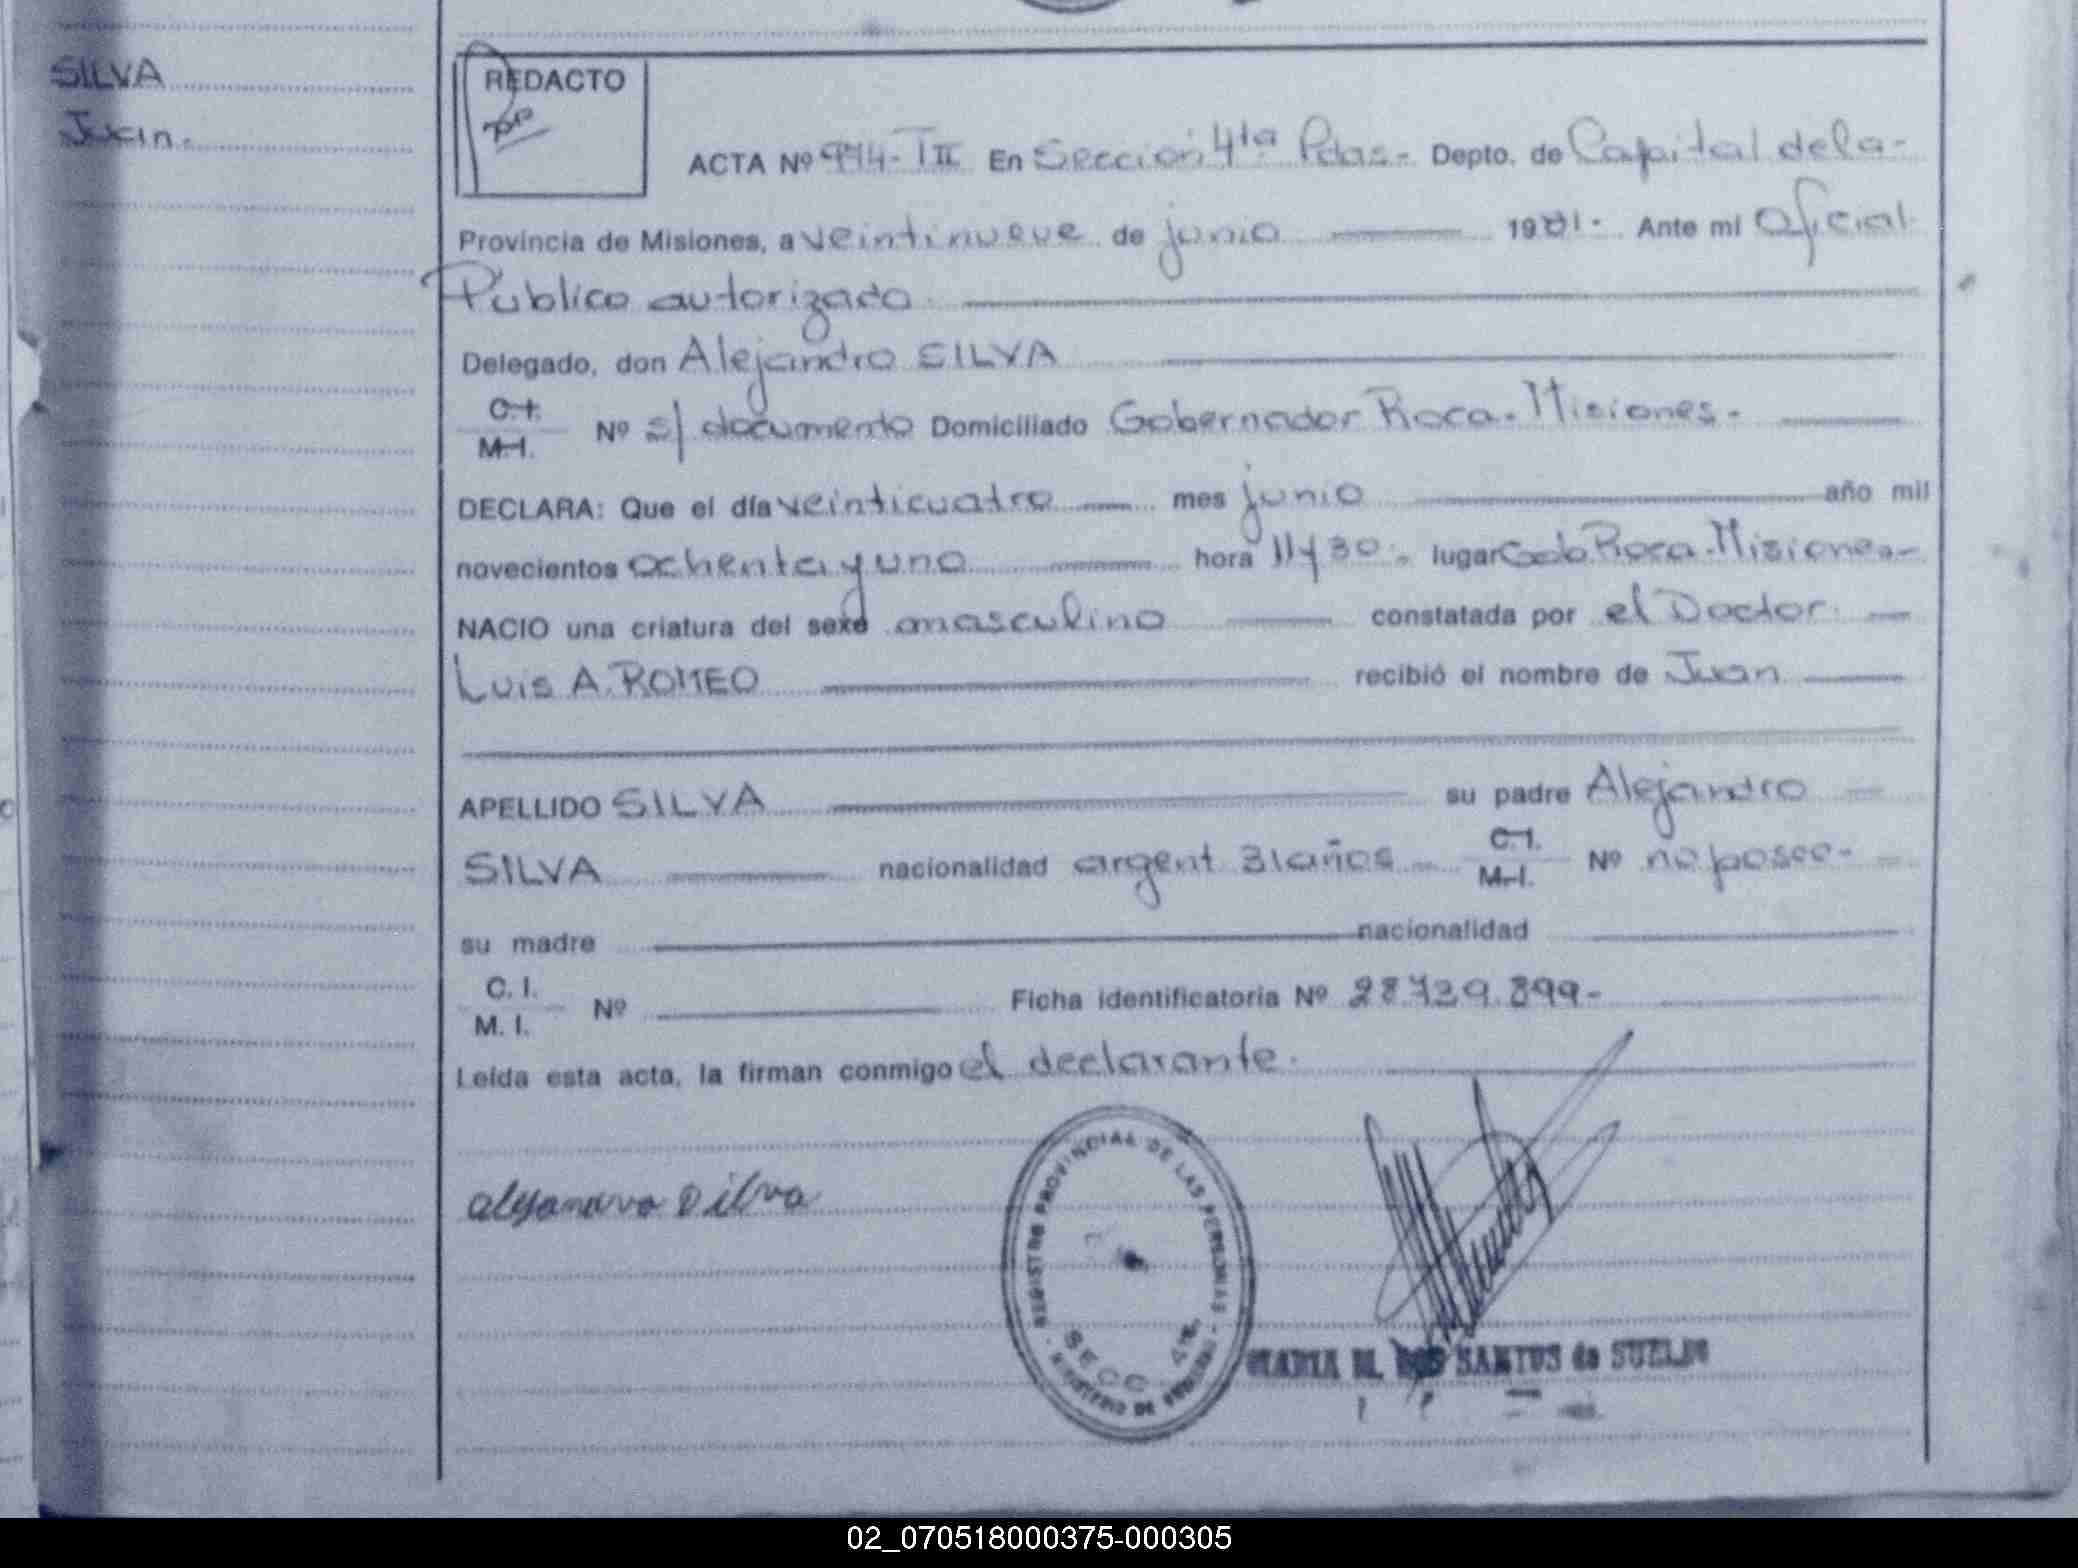 SILVA
Juan.
REDACTO
ACTA Nº 944-TIII En Sección 4ta Pdas- Depto. de Capital de la-
Provincia de Misiones, a veintinueve de junio 1981. Ante mi Oficial
Público autorizado
Delegado, don Alejandro SILVA
C.I.
M.I. Nº s/ documento Domiciliado Gobernador Roca-Misiones-
DECLARA: Que el día veinticuatro mes junio año mil
novecientos ochenta y uno hora 11y30- lugar Gob Roca-Misiones-
NACIO una criatura del sexo masculino constatada por el Doctor
Luis A. ROMEO recibió el nombre de Juan
APELLIDO SILVA su padre Alejandro
SILVA nacionalidad argent 31 años C.I.
M.I. Nº no posee-
su madre nacionalidad
C. I.
M. I. Nº Ficha identificatoria Nº 28.729.899-
Leída esta acta, la firman conmigo el declarante.
alejandro Silva
REGISTRO PROVINCIAL DE LAS PERSONAS
SECC. 4ta
MARIA M. DOS SANTOS de SUELDO
02_070518000375-000305